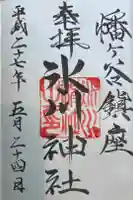 幡ヶ谷鎮座
奉拝
氷川神社
平成二十七年
五月二十四日